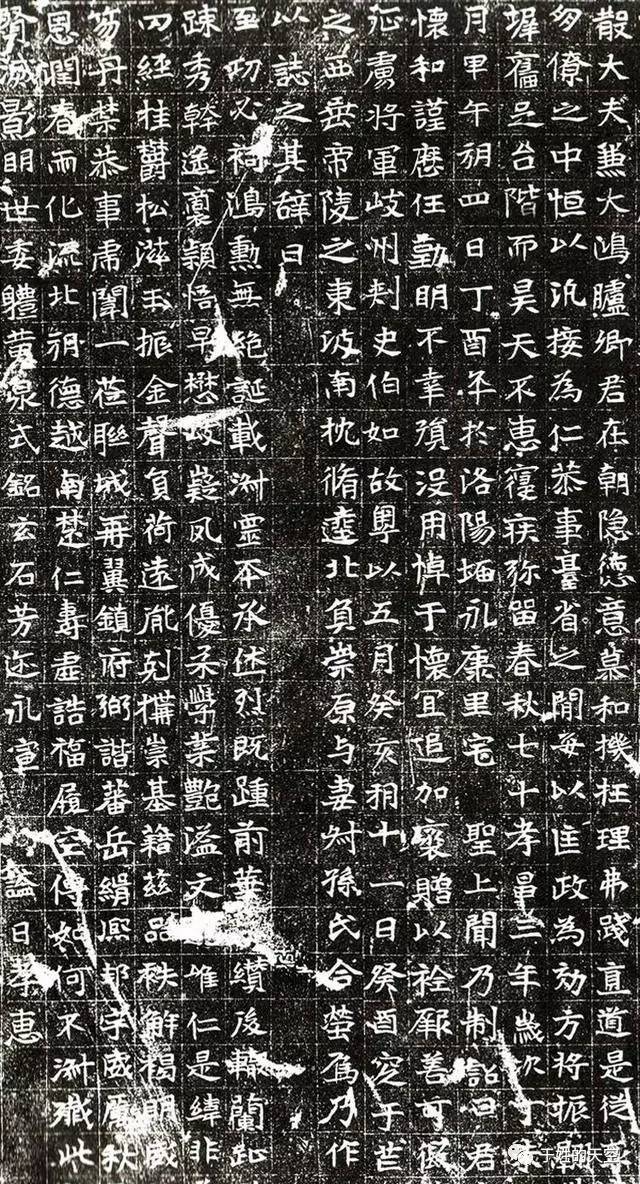 散大夫兼大鴻臚卿君在朝隐德意慕和撲枉理弗踐直道是從
僚之中恒以汎接為仁恭事臺省之間每以匡政為効方將振翮
墀台階而昊天不惠寢疾弥留春秋七十孝昌三年歲次丁未
月甲午朔四日丁酉卒於洛陽城永康里宅 聖上聞乃制詔曰君
懷和謹歷任勤明不幸殞没用悼于懷宜追加褒贈以厥善可假
征虜將軍岐州刺史伯如故粵以五月癸亥朔十一日癸酉窆于芒
之西帝陵之東坡南枕脩逵北負崇原与妻尉孫氏合塋焉乃作
以誌之其辭曰
至功必祠鴻勳無絕誕載淵靈丕承休烈既踵前華纘後轍蘭趾
踈秀幹遙穎悟早懋岐嶷夙成優柔學業艷溢文唯仁是緯非
經桂鬱松滋玉振金聲負荷遠胤剋構崇基籍茲品秩解褐明威
丹禁恭事肅闈一莅聯城再翼鎮府弼諧蕃岳緝熙邦宇威厲秋
恩潤春雨化流北朔德越南楚仁壽虛誥福履空傳如何不淑殲此
賢滅影明世委體黃泉式銘玄石芳迹永宣 謚曰孝惠
于姓的天空